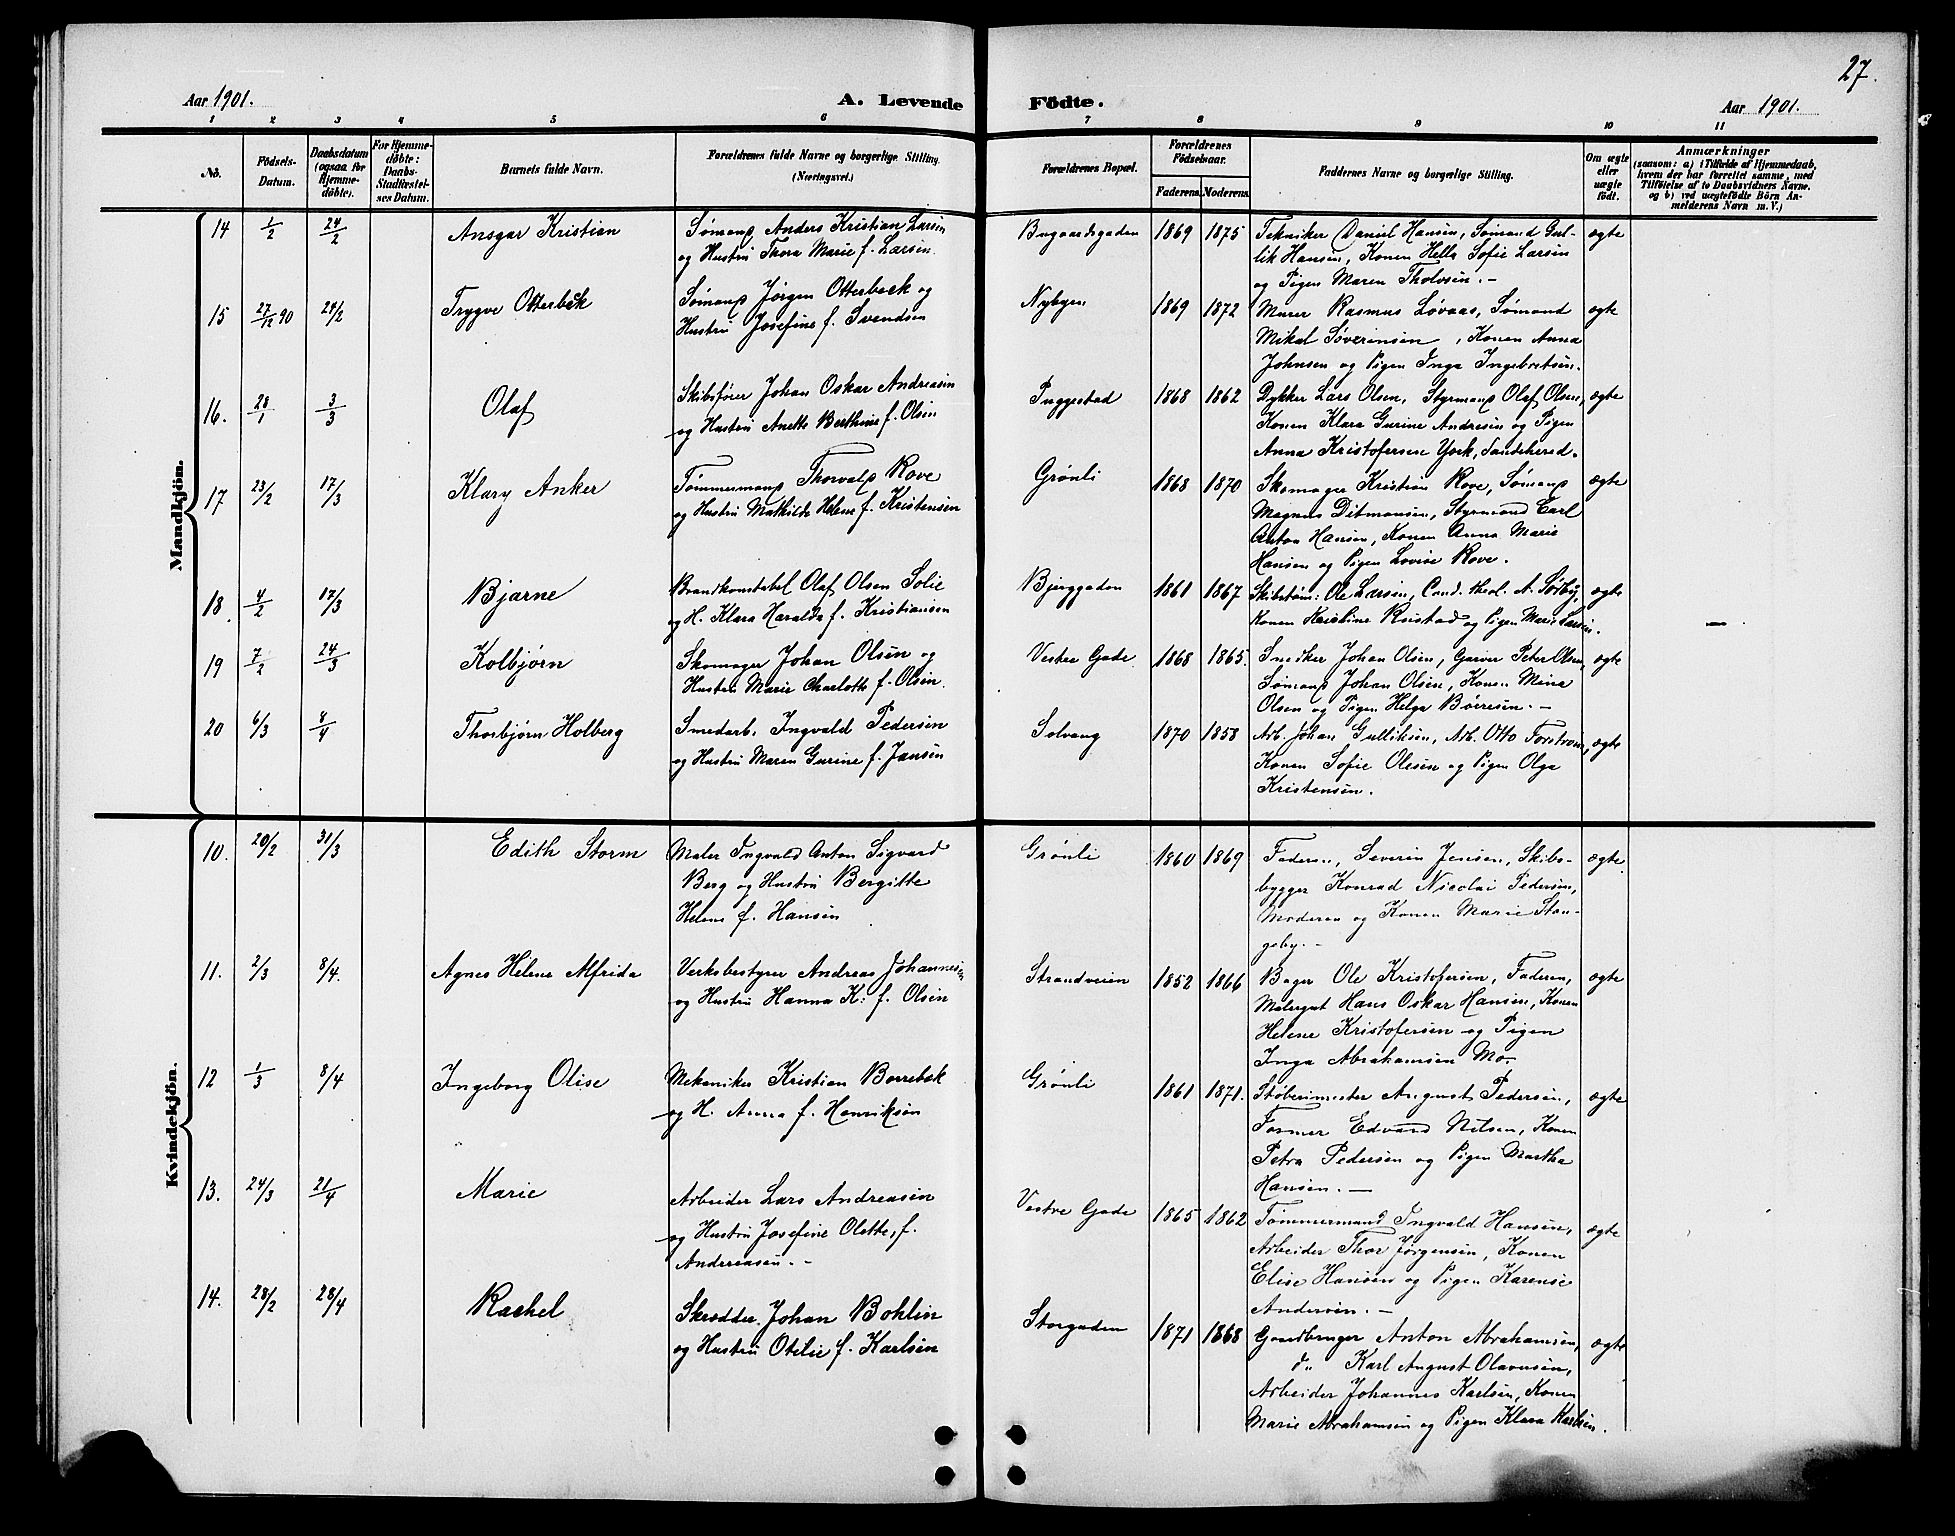 27.
Aar 1901. A. Levende Födte. Aar 1901.
1 2 3 4 5 6 7 8 9 10 11
No. Födsels-Datum. Daabsdatum (ogsaa for Hjemme-döbte). For Hjemme-döbte: Daabs-Stadfæstel-ses Datum. Barnets fulde Navn. Forældrenes fulde Navne og borgerlige Stilling. (Næringsvei.) Forældrenes Bopæl. Forældrenes Födselsaar. Faderens. Moderens. Faddernes Navne og borgerlige Stilling. Om ægte eller uægte födt. Anmærkninger (saasom: a) i Tilfælde af Hjemmedaab, hvem der har forrettet samme, med Tilföielse af to Daabsvidners Navne. og b) ved uægtefödte Börn An-melderens Navn m. V.)
Mandkjön.
14 1/2 24/2 Ansgar Kristian Sømand Anders Kristian Larsen Bugaardsgaden 1869 1875 Tekniker Daniel Hansen, Sømand Gul- ægte
og Hustru Thora Marie f. Larsen. lik Hansen, Konen Hella Sofie Larsen
og Pigen Maren Tholvsen. —
15 27/12 90 24/2 Trygve Otterbeck Sømand Jørgen Otterbeck og Nybyen 1869 1872 Murer Rasmus Løvaas, Sømand ægte
Hustru Josefine f. Svendsen Mikal Søverinsen, Konen Anna
Johnsen og Pigen Inga Ingebretsen.
16. 28/1 3/3 Olaf Skibsfører Johan Oskar Andreasen Puggestad 1868 1862 Dykker Lars Olsen, Styrmand Olaf Olsen, ægte
og Hustru Anette Berthine f. Olsen Konen Klara Gurine Andresen og Pigen
Anna Kristofersen York, Sandehered.
17 23/2 17/3 Klary Anker Tømmermand Thorvald Rove Grønli 1868 1870 Skomager Kristian Rove, Sømand ægte
og Hustru Mathilde Helene f. Kristensen Magnus Ditmansen, Styrmand Carl
Anton Hansen, Konen Anna Marie
Hansen og Pigen Lovise Rove.
18. 4/2 17/3 Bjarne Brandkonstabel Olaf Olsen Solie Bjerggaden 1861 1867 Skibstøm: Ole Larsen, Cand. theol. A. Sørby, ægte
og H. Klara Haralda f. Kristiansen Konen Kristine Rustad og Pigen Marie Larsen. —
19 7/2 24/3 Kolbjørn Skomager Johan Olsen og Vestre Gade 1868 1865. Snedker Johan Olsen, Garver Peter Olsen, ægte
Hustru Marie Charlotte f. Olsen. Sømand Johan Olsen, Konen Mina
Olsen og Pigen Helga Børresen. —
20 6/3 8/4 Thorbjørn Holberg Smedarb. Ingvald Pedersen Solvang 1870 1858 Arb. Johan Gulliksen, Arb. Otto Forstrøm, ægte
og Hustru Maren Gurine f. Jansen Konen Sofie Olesen og Pigen Olga
Kristensen.
Kvindekjön.
10. 20/2 31/3 Edith Storm Maler Ingvald Anton Sigvard Grønli 1860 1869 Faderen, Severin Jensen, Skibs- ægte
Berg og Hustru Bergitte bygger Konrad Nicolai Pedersen,
Helene f. Hansen Moderen og Konen Marie Stan-
geby. —
11. 2/3 8/4. Agnes Helene Alfrida Verksbestyrer Andreas Johannesen Strandveien 1852 1866 Bager Ole Kristofersen, Faderen, ægte
og Hustru Hanna K: f. Olsen Malergut Hans Oskar Hansen, Konen
Helene Kristofersen og Pigen
Inga Abrahamsen Mo.
12 1/3 8/4 Ingeborg Olise Mekaniker Kristian Borrebæk Grønli 1861 1871. Støberimester August Pedersen, ægte
og H. Anna f. Henriksen Former Edvard Nilsen, Konen
Petra Pedersen og Pigen Martha
Hansen. —
13. 24/3 21/4 Marie Arbeider Lars Andreasen Vestre Gade 1865 1862 Tømmermand Ingvald Hansen, ægte
og Hustru Josefine Olette, f. Arbeider Thor Jørgensen, Konen
Andreasen. — Elise Hansen og Pigen Karense
Andersen. —
14. 28/2 28/4 Rachel Skrædder Johan Bohlin Storgaden 1871 1868 Gaardbruger Anton Abrahamsen, ægte
og Hustru Otelie f. Karlsen d" Karl August Olavesen,
Arbeider Johannes Karlsen, Konen
Marie Abrahamsen og Pigen Klara Karlsen.